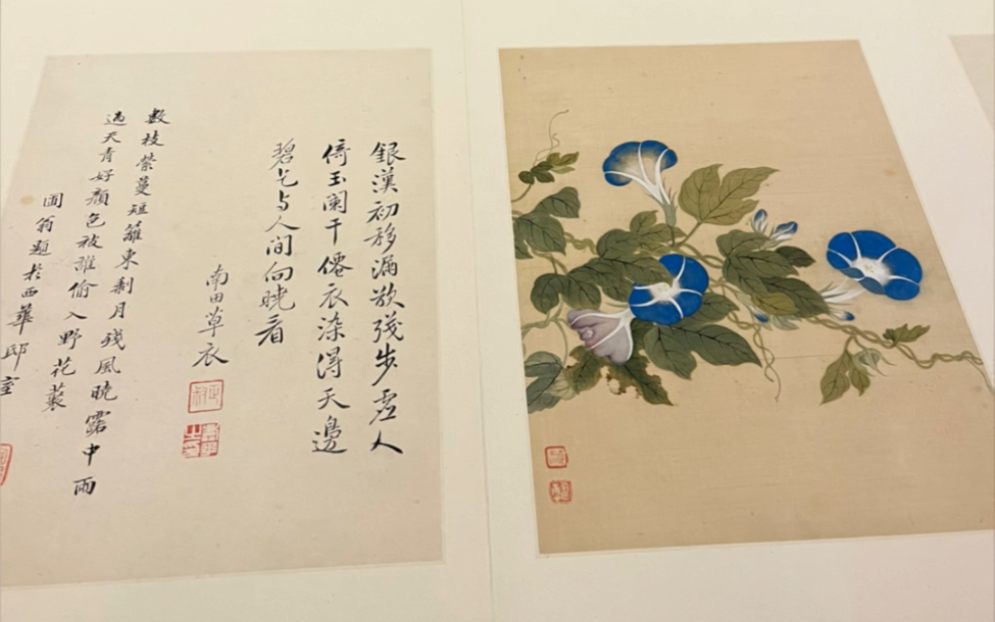 銀漢初移漏欲殘步虛人
倚玉闌干僊衣染得天邊
碧乞与人間向曉看
南田草衣
數枝縈蔓短籬東剩月殘風曉露中雨
過天青好顏色被誰偷入野花藂
圃翁題於西華邸室